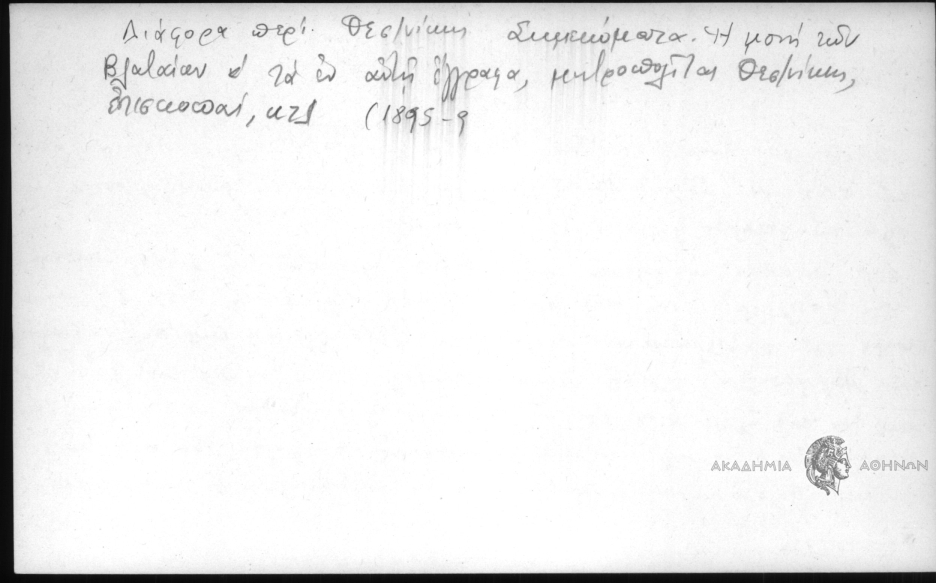 Διάφορα περί Θεσ/νίκης Σημειώματα. Ἡ μονή τῶν
Βλαταίων κ' τά ἐν αὐτῇ ἔγγραφα, μητροπολῖται Θεσ/νίκης,
ἐπισκοπαί, κτλ (1895-9
ΑΚΑΔΗΜΙΑ ΑΘΗΝΩΝ